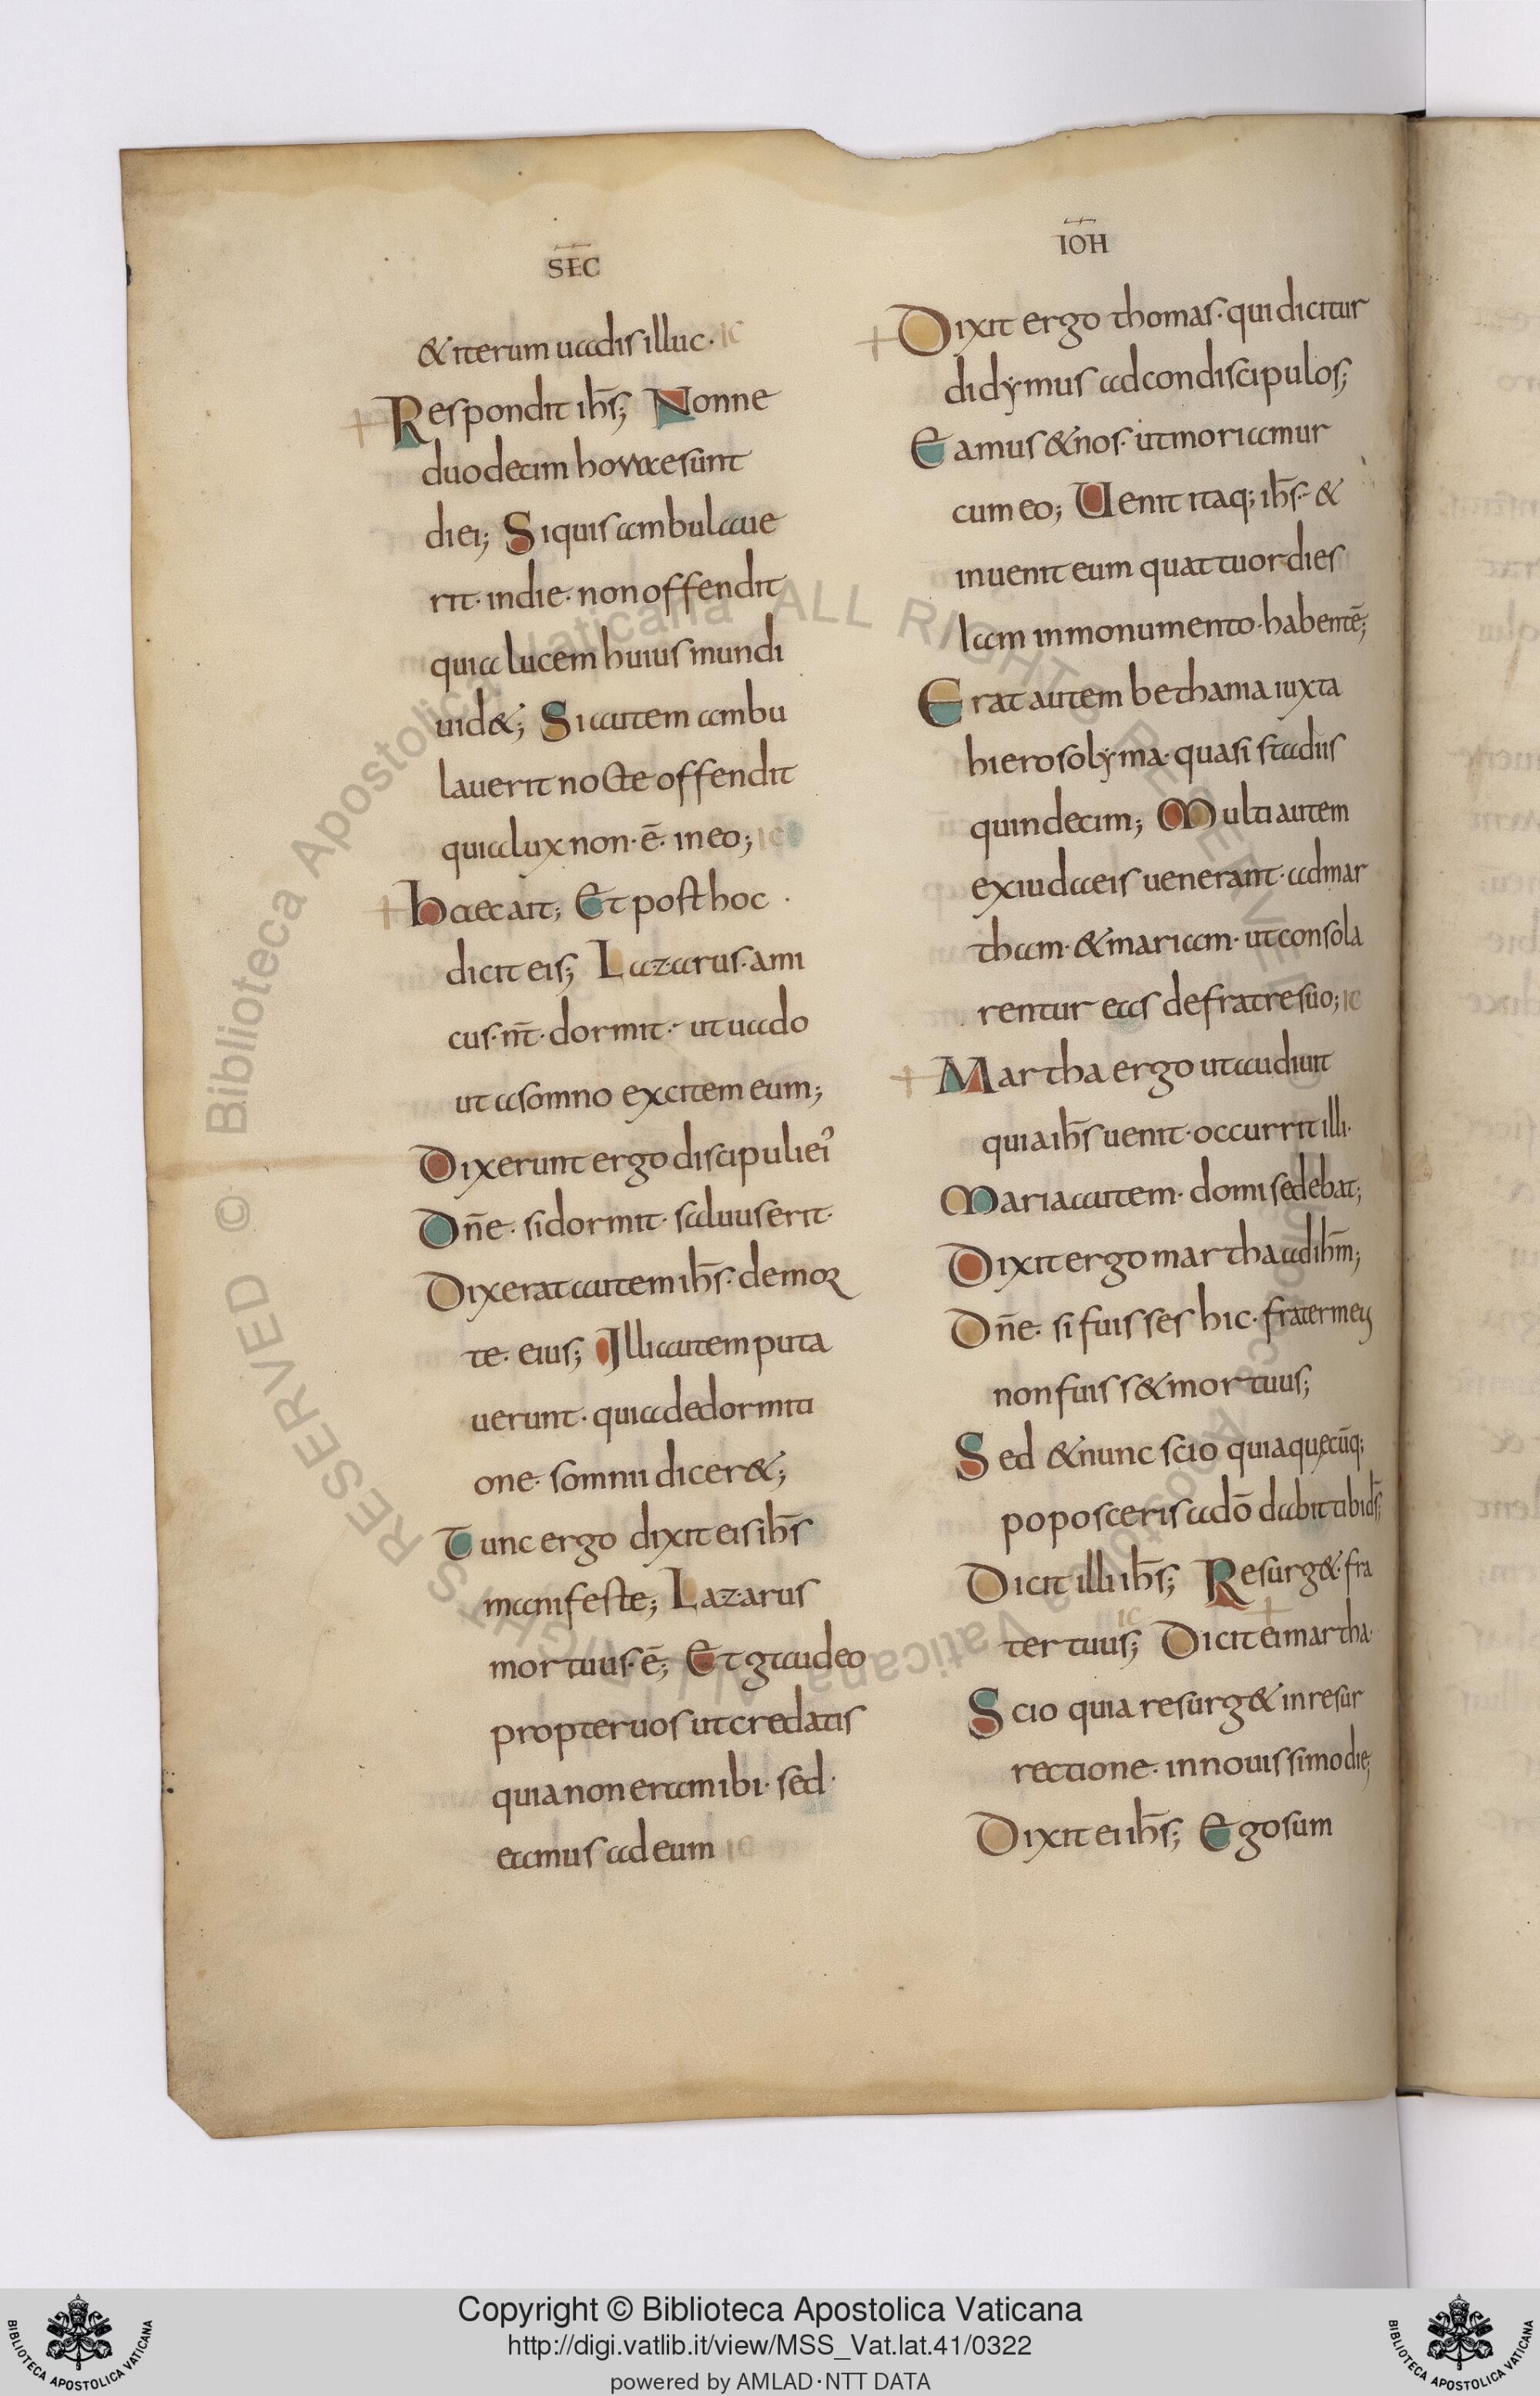 SEC̅
& iterum uadis illuc · ic
+ Respondit ihs̅; Nonne
duodecim horae sunt
diei; Si quis ambulaue
rit · in die · non offendit
quia lucem huius mundi
uid&; Si autem ambu
lauerit nocte offendit
quia lux non · ē · in eo; ic
+ Haec ait; Et post hoc ·
dicit eis; Lazarus · ami
cus · nr̅ · dormit · ut uado
ut a somno excitem eum;
Dixerunt ergo discipuli ei᾿
Dn̅e · si dormit · saluus erit ·
Dixerat autem ihs̅ · de mor
te · eius; Illi autem puta
uerunt · quia de dormiti
one · somnii dicer&;
Tunc ergo dixit eis ihs̅
manifeste; Lazarus
mortuus · ē; Et gaudeo
propter uos ut credatis
quia non eram ibi · sed ·
eamus ad eum ic
IOH̅
+ Dixit ergo thomas · qui dicitur
didẏmus ad condiscipulos;
Eamus & nos · ut moriamur
cum eo; Uenit itaq; ihs̅ · &
inuenit eum quattuor dies
iam in monumento · habentē;
Erat autem bethania iuxta
hierosolẏma · quasi stadiis
quindecim; Multi autem
ex iudaeis uenerant · ad mar
tham · & mariam · ut consola
rentur eas de fratre suo; ic
+ Martha ergo ut audiuit
quia ihs̅ uenit · occurrit illi ·
Maria autem · domi sedebat;
Dixit ergo martha ad ihm̅;
Dn̅e · si fuisses hic · frater meus
non fuiss& mortuus;
Sed & nunc scio quia quęcūq;
poposceris a dō dabit tibi ds̅;
Dicit illi ihs̅; Resurg& · fra
ter tuus; ic + Dicit ei martha ·
Scio quia resurg& in resur
rectione · in nouissimo die;
Dixit ei ihs̅; Ego sum
© Biblioteca Apostolica Vaticana ALL RIGHTS RESERVED
© Biblioteca Apostolica Vaticana ALL RIGHTS RESERVED
Copyright © Biblioteca Apostolica Vaticana
http://digi.vatlib.it/view/MSS_Vat.lat.41/0322
powered by AMLAD·NTT DATA
BIBLIOTECA APOSTOLICA VATICANA
BIBLIOTECA APOSTOLICA VATICANA